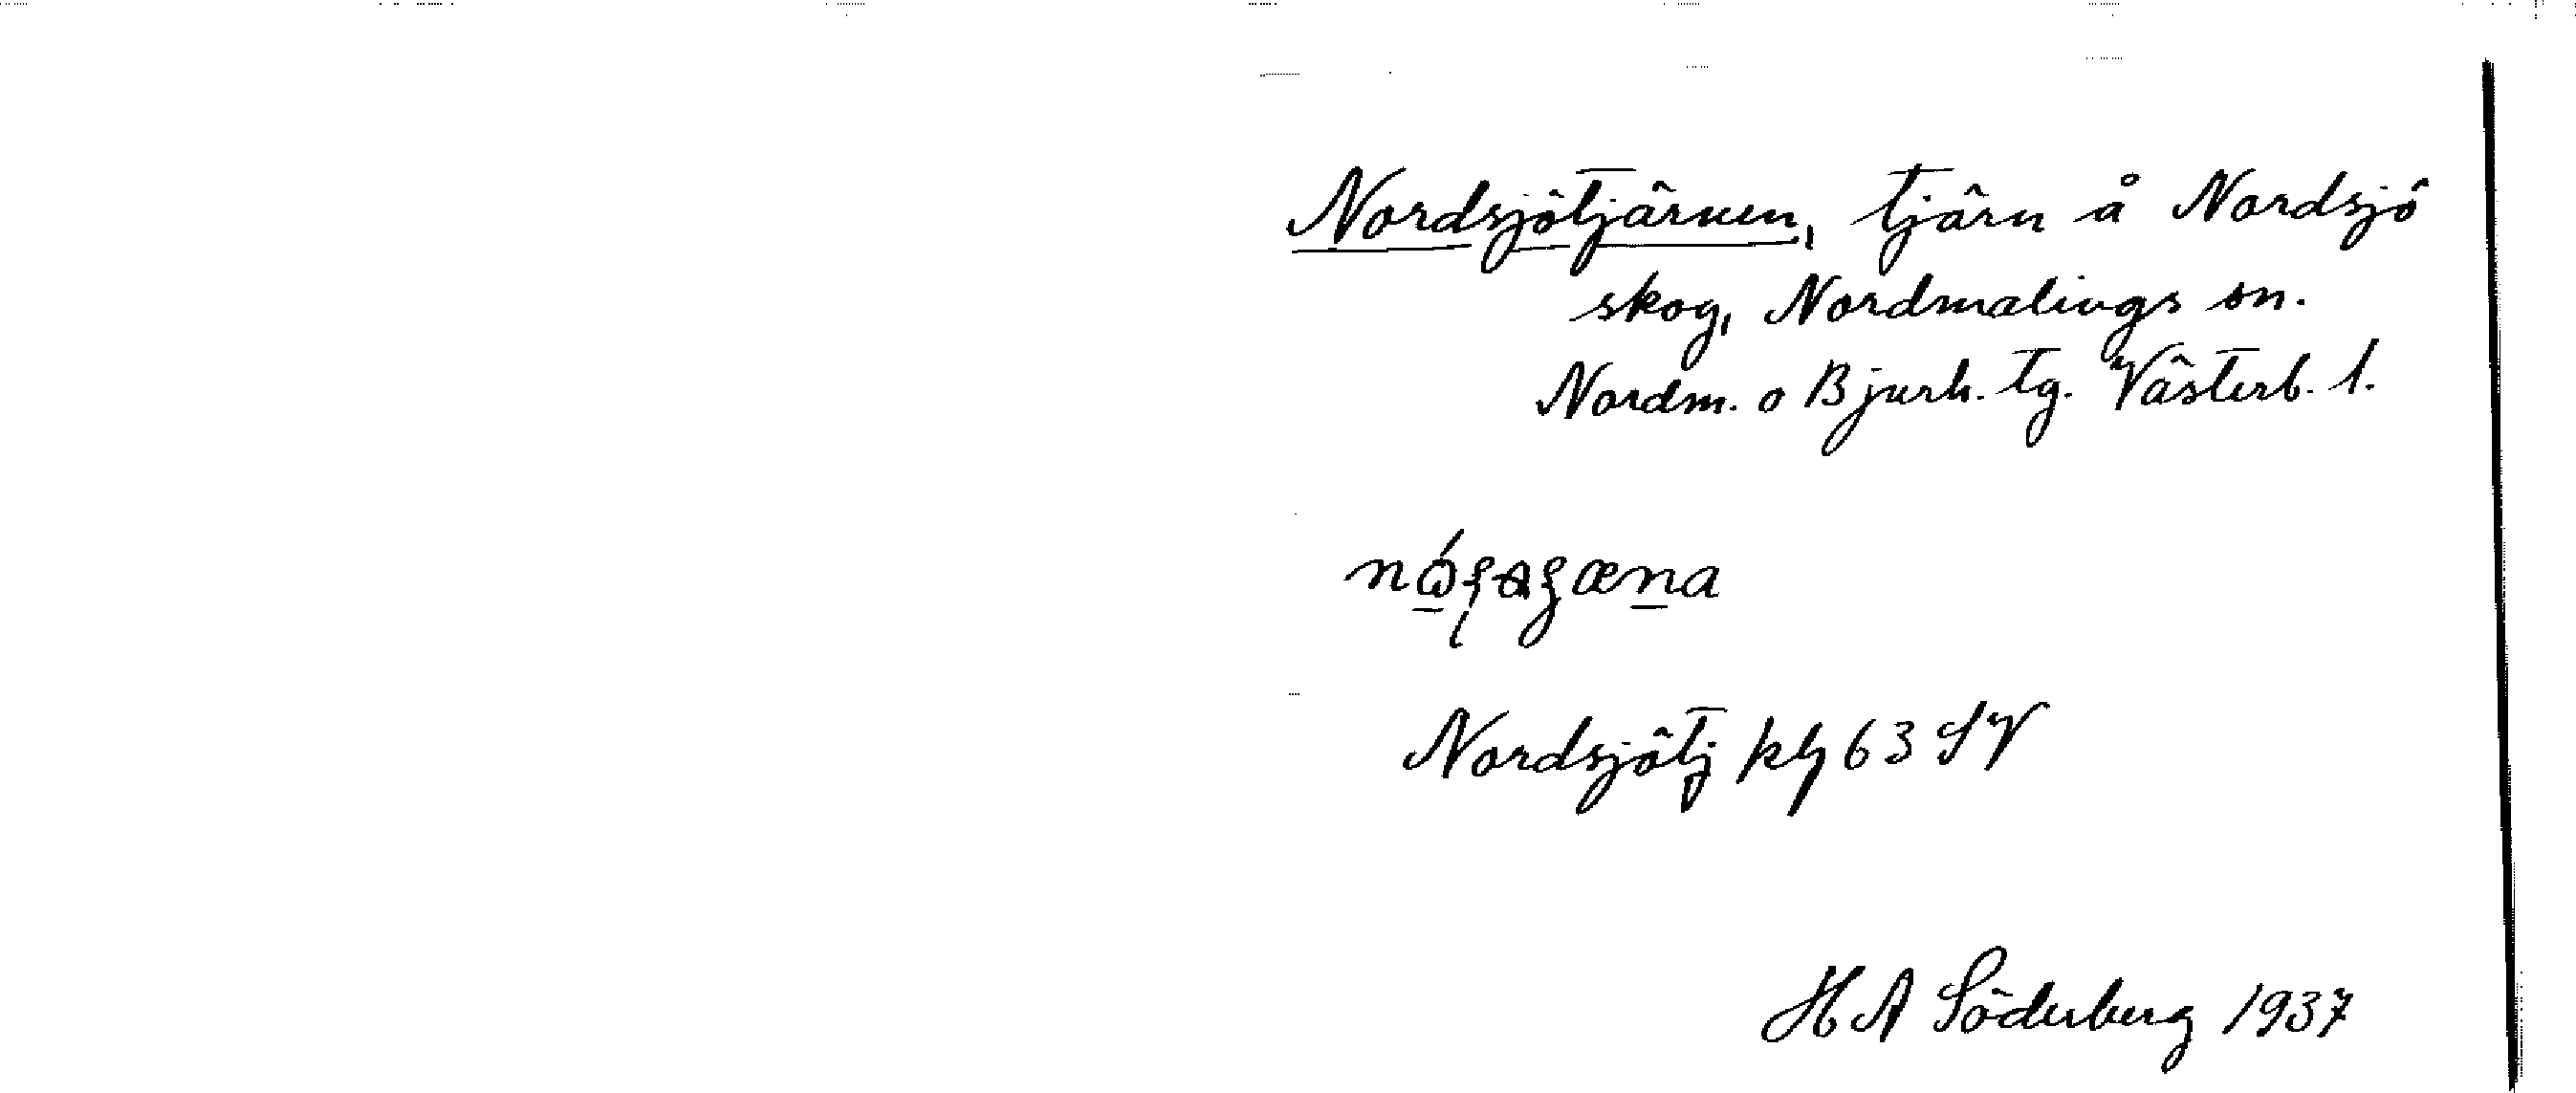 Nordsjötjärnen, tjärn å Nordsjö
skog, Nordmalings sn.
Nordm. o Bjurh. tg. Västerb. l.
Nordsjötj kbl 63 SV
H A Söderberg 1937